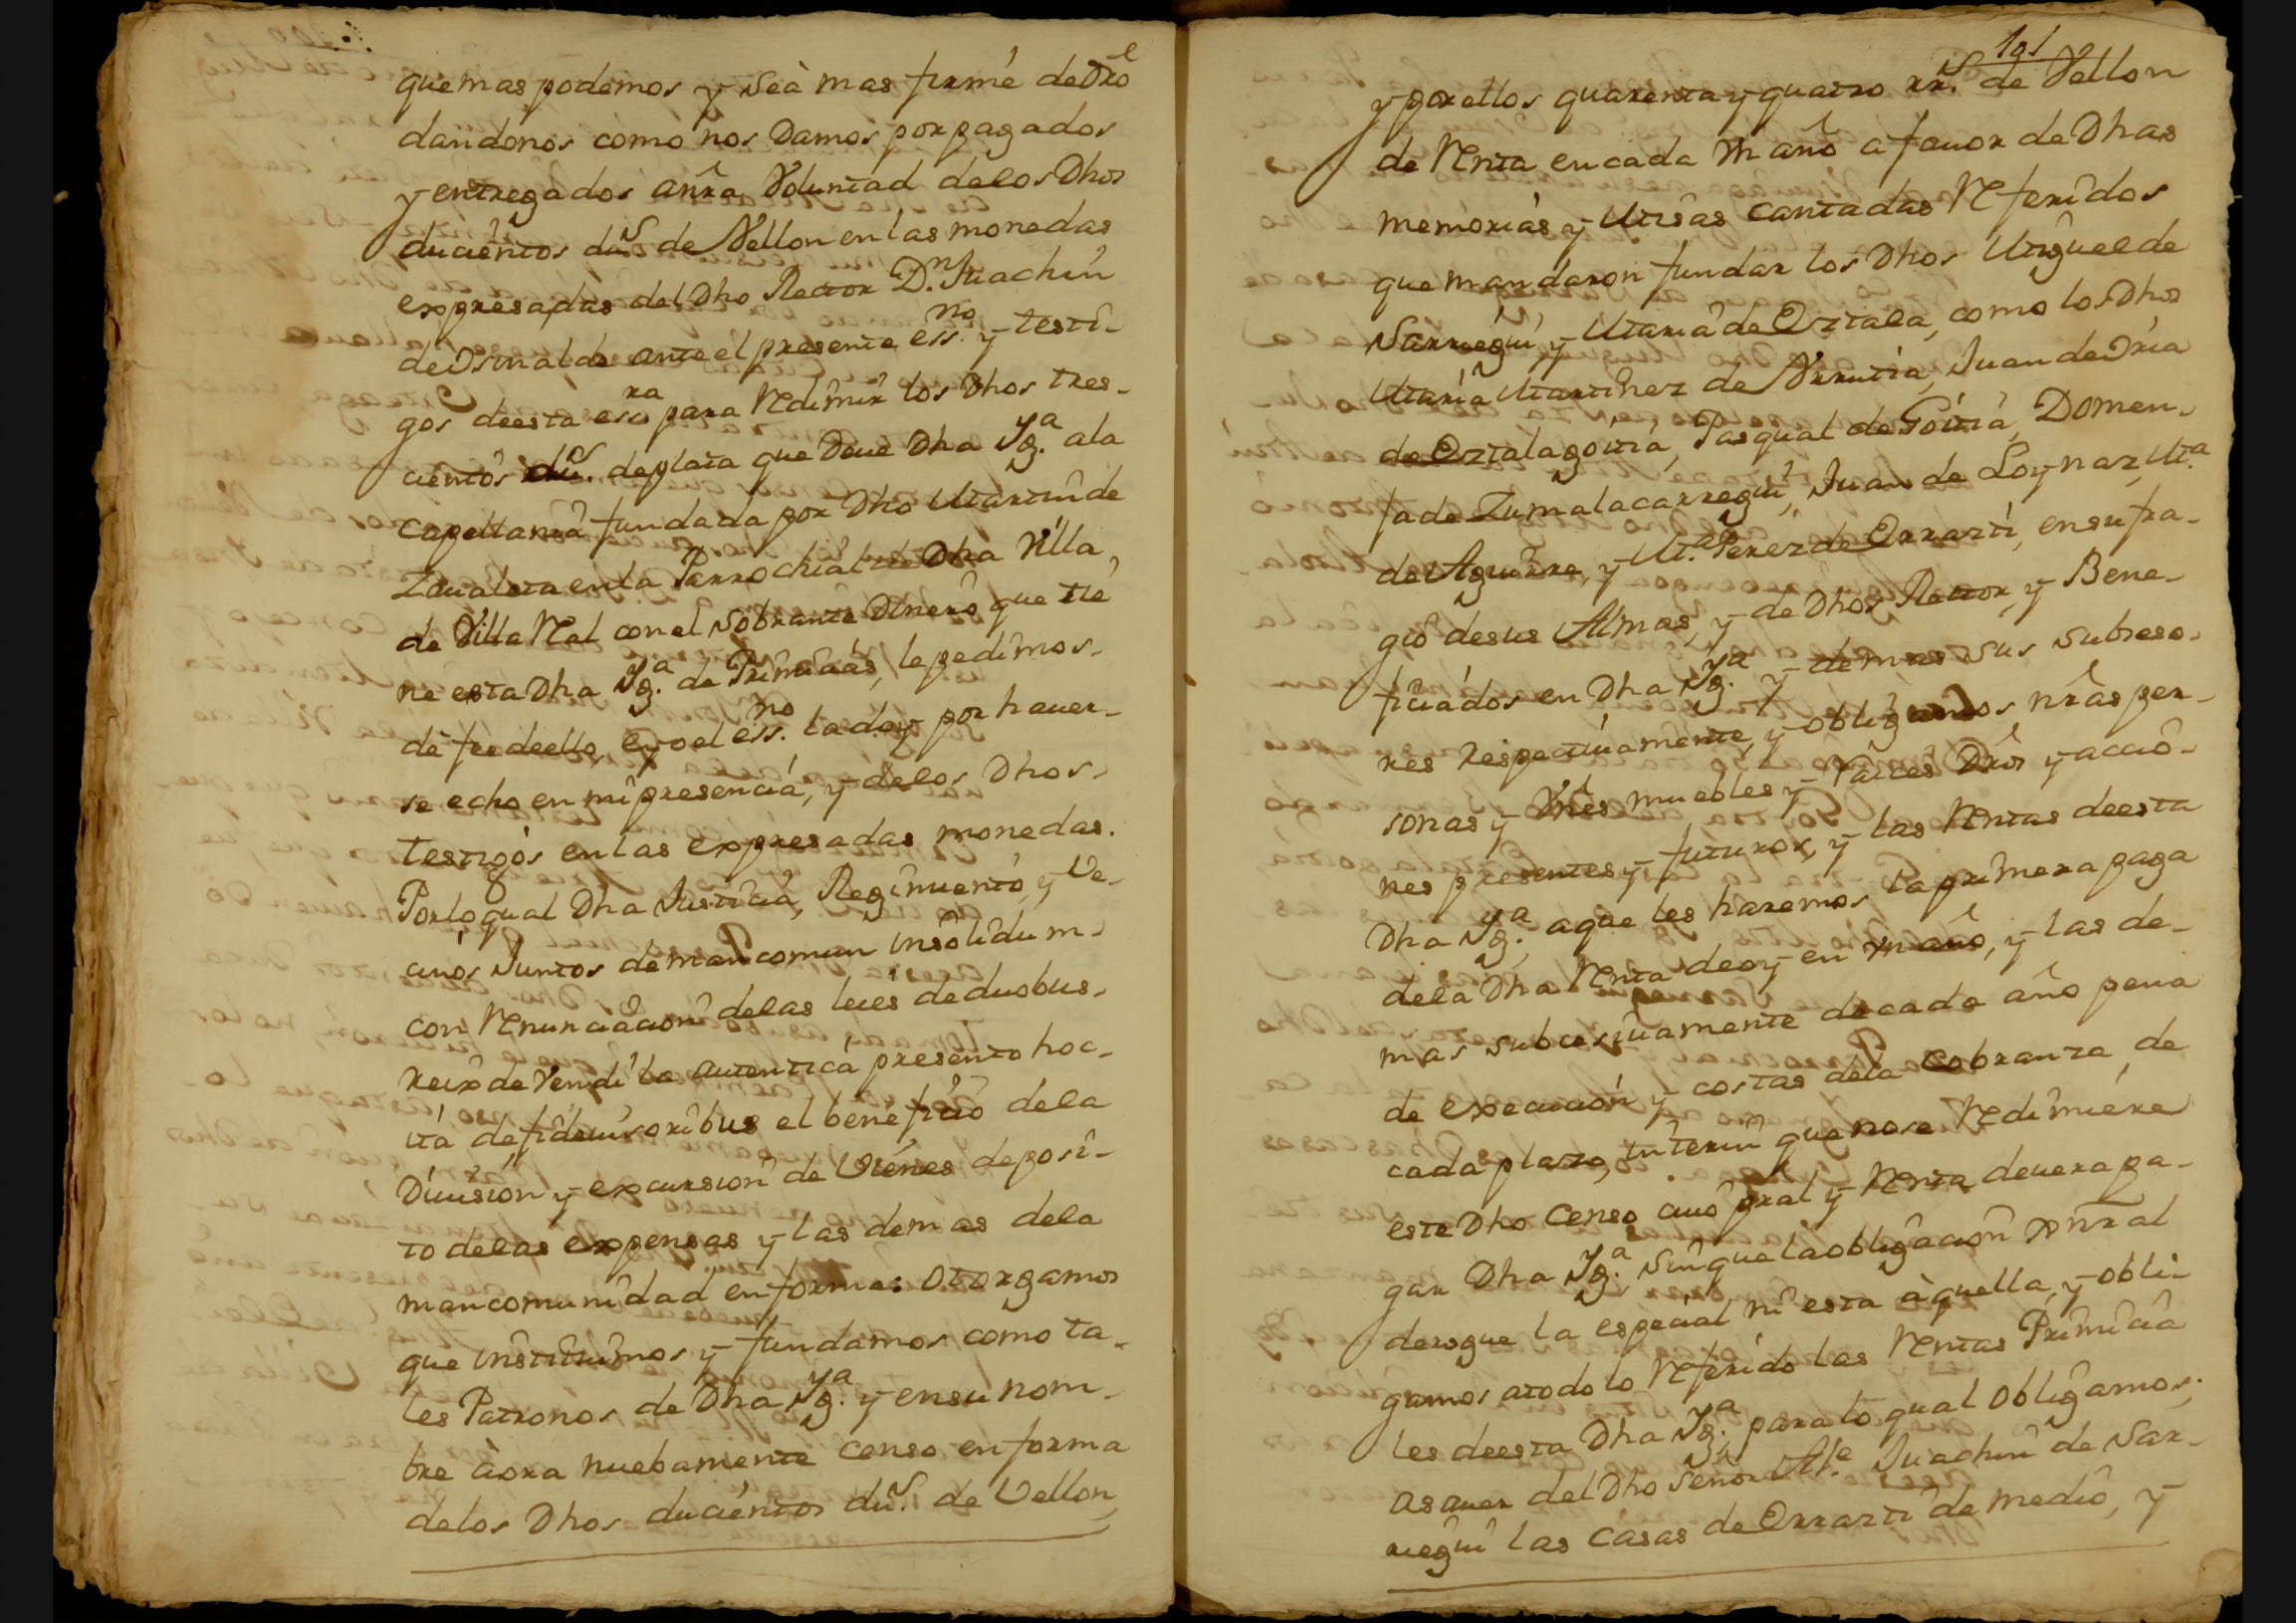 que mas podemos y sea mas firme de dro
dandonos como nos Damos por pagados
y entregados anra Voluntad delos Dhos
ducientos dus de Vellon en las monedas
expresadas del Dho Rector Dn. Juachin
de Isinalde ante el presente essno. y testi-
gos deesta escra para Redimir los Dhos tres-
cientos dus. deplata que Deue Dha Yga. ala
capellania fundada por Dho Martin de
Zaualeta en la Parrochial de Dha Villa,
de Villa Real con el sobrante Dinero que tie
ne esta Dha Yga. de Primicias, le pedimos-
dè fee deello, e yo el essno. la doy por hauer-
se echo en mi presencia, y delos Dhos-
testigos en las expresadas monedas.
Porlo qual Dha Justicia, Regimiento, y Ve-
cinos Juntos de mancomun insolidum-
con Renunciacion delas leies deduobus-
Reix de vendi la autentica presento hoc-
ita defideiusoribus el beneficio dela
Diuision y excursion de Vienes deposi-
to delas expensas y las demas dela
mancomunidad en forma: otorgamos
que instituimos y fundamos como ta-
les Patronos de Dha Yga. y ensu nom-
bre àora nuebamente censo en forma
delos Dhos ducientos dus. de Vellon,
101
y por ellos quarenta y quatro rrs. de Vellon
de Renta en cada Vn año a fauor de Dhas
memorias y Misas cantadas Referidos
que mandaron fundar los Dhos Miguel de
Sarriegui y Maria de Oztala, como los Dhos
Maria Martinez de Vrrutia, Juan de Vria
de Oztalagoitia, Pasqual de Goitia, Domen-
ja de Zumalacarregui, Juan de Loynaz, Ma.
de Aguirre, y Ma. Perez de Orrazti, en sufra-
gio desus Almas, y de Dhos Rector, y Bene-
ficiados en Dha Yga. y demas sus subceso-
res Respectiuamente, y obligamos nras per-
sonas y Vnes muebles y Raices Dros y accio-
nes presentes y futuros, y las Rentas deesta
Dha Yga. aque les haremos la primera paga
dela Dha Renta deoy en vn año, y las de-
mas subcesiuamente decada año pena
de execucion y costas dela cobranza de
cada plazo, interin que nose Redimiere
este Dho censo cuio pral y Renta deuera pa-
gar Dha Yga. sin que la obligacion xnral
derogue la especial ni esta àquella, y obli-
gamos atodo lo Referido las Rentas Primicia
les deesta Dha Yga; para lo qual obligamos;
asauer del Dho señor Ale. Juachin de Sar-
riegui las casas de Orrazti de medio, y